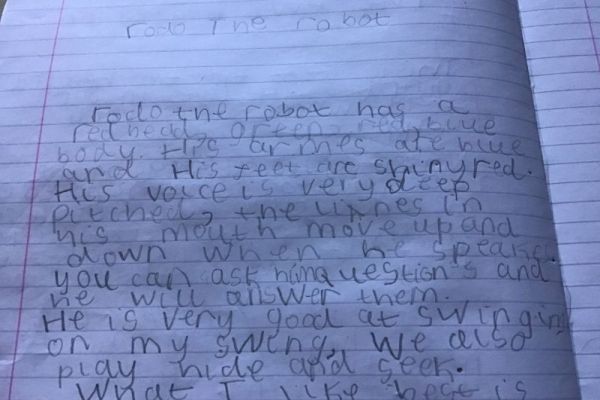 rodo The robot
rodo the robot has a
red head, green, red, blue
body. His armes are blue
and His feet are shiny red.
His voice is very deep
pitched, the linnes in
his mouth move up and
down when he speaks.
you can ask him questions and
he will answer them.
He is very good at swinging
on my swing, We also
play hide and seek.
What I like best is